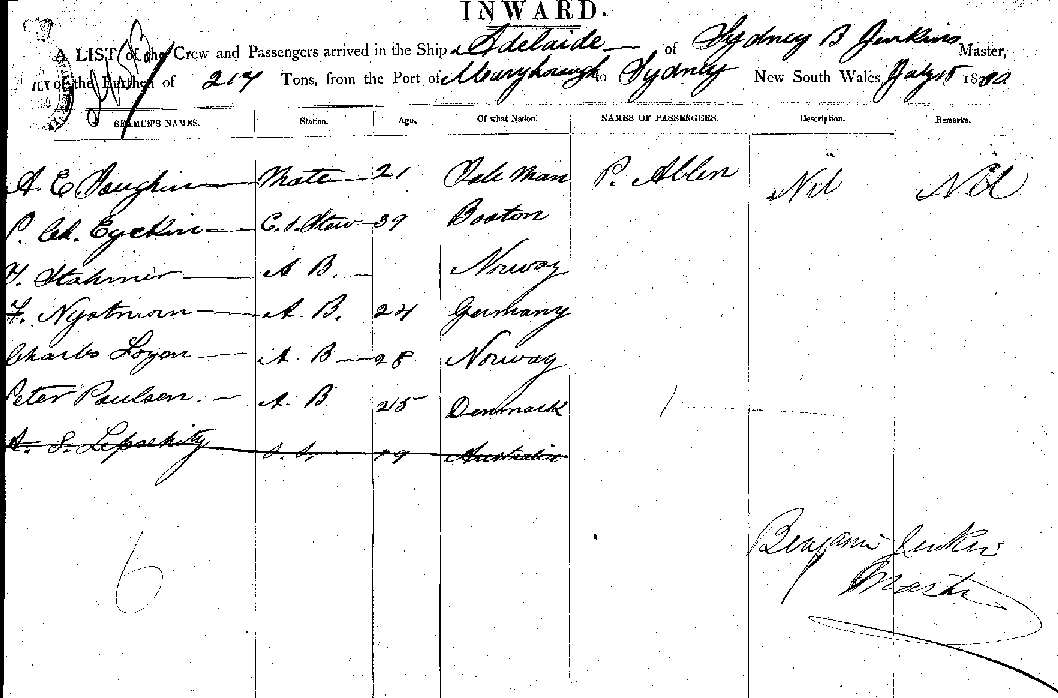 INWARD.
A LIST of the Crew and Passengers arrived in the Ship Adelaide of Sydney B Jenkins Master,
of the Burthen of 217 Tons, from the Port of Maryborough to Sydney New South Wales July 188
SEAMEN'S NAMES. Station. Age. Of what Nation. NAMES OF PASSENGERS. Description. Remarks.
A. E. Mate 21 P. Allen Nil Nil
P. Ch. C. & Stew 39 Boston
A B. Norway
F. Nystrom A. B. 24 Germany
Charles Logan A. B 28 Norway
Peter Paulsen. A. B 25 Denmark
A. S. 19 Australia
6
Benjamin Jenkins
Master